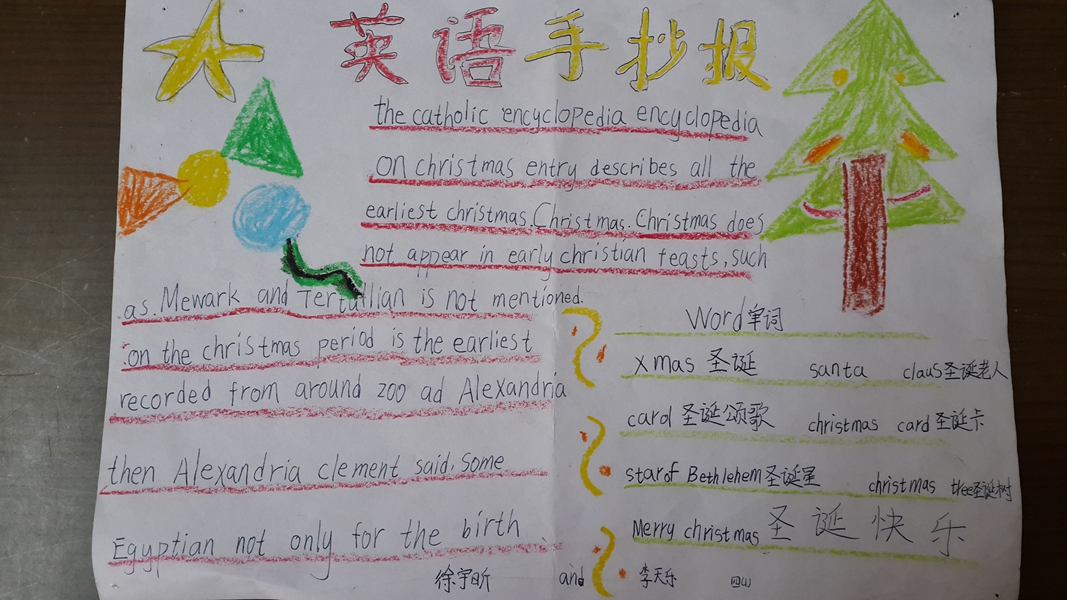 英语手抄报
the catholic encyclopedia encyclopedia
on christmas entry describes all the
earliest christmas. Christ.mas. Christmas does
not appear in early christian feasts, such
as. Mewark and Tertullian is not mentioned.
on the christmas period is the earliest
recorded from around 200 ad Alexandria
then Alexandria clement said, some
Egyptian not only for the birth
Word单词
xmas 圣诞 santa claus圣诞老人
carol 圣诞颂歌 christmas card 圣诞卡
star of Bethlehem圣诞星 christmas tree圣诞树
Merry christmas 圣诞快乐
徐宇昕 and 李天乐 四(1)